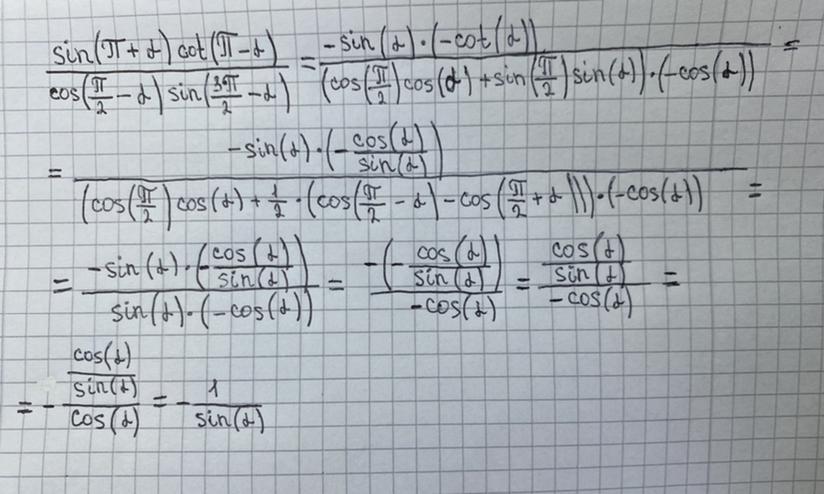 \frac{sin(π+α) cot(π-α)}{cos(\frac{π}{2}-α) sin(\frac{3π}{2}-α)} = \frac{-sin(α)·(-cot(α))}{(cos(\frac{π}{2})cos(α)+sin(\frac{π}{2})sin(α))·(-cos(α))} =
= \frac{-sin(α)·(-\frac{cos(α)}{sin(α)})}{(cos(\frac{π}{2})cos(α)+\frac{1}{2}·(cos(\frac{π}{2}-α)-cos(\frac{π}{2}+α)))·(-cos(α))} =
= \frac{-sin(α)·(-\frac{cos(α)}{sin(α)})}{sin(α)·(-cos(α))} = \frac{-(-\frac{cos(α)}{sin(α)})}{-cos(α)} = \frac{\frac{cos(α)}{sin(α)}}{-cos(α)} =
= -\frac{\frac{cos(α)}{sin(α)}}{cos(α)} = -\frac{1}{sin(α)}